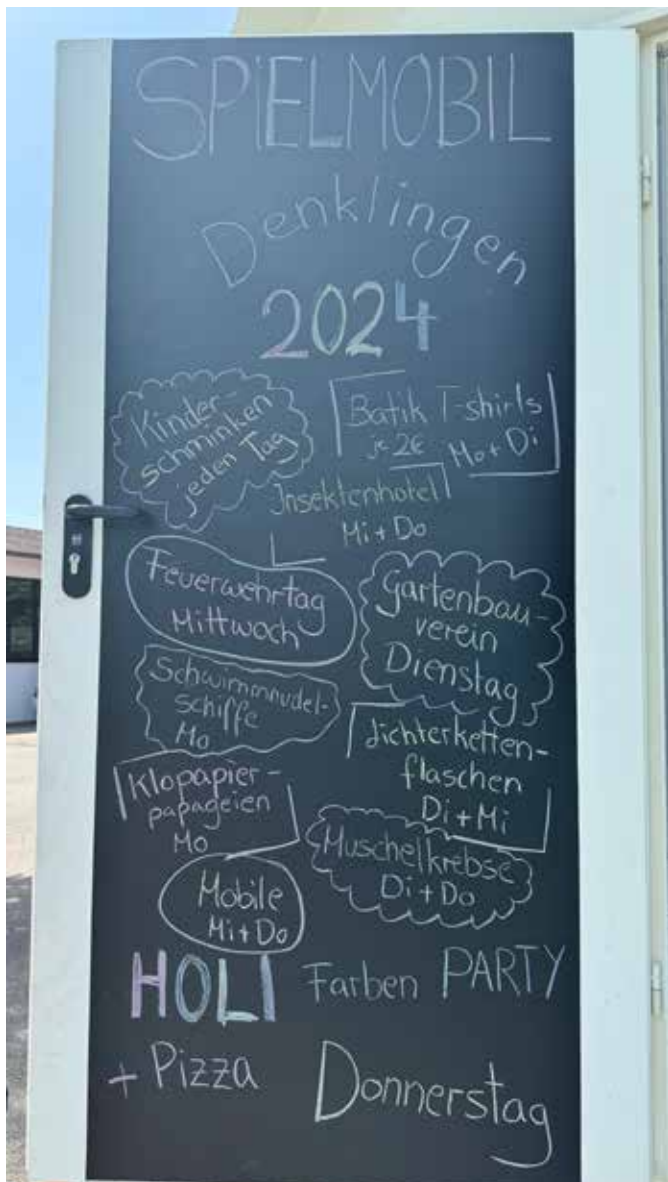 SPIELMOBIL
Denklingen
2024
Kinder-
schminken
jeden Tag
Batik T-shirts
je 2€ Mo + Di
Insektenhotel
Mi + Do
Feuerwehrtag
Mittwoch
Gartenbau-
verein
Dienstag
Schwimmnudel-
schiffe
Mo
Lichterketten-
flaschen
Di + Mi
Klopapier-
papageien
Mo
Muschelkrebse
Di + Do
Mobile
Mi + Do
HOLI Farben PARTY
+ Pizza Donnerstag